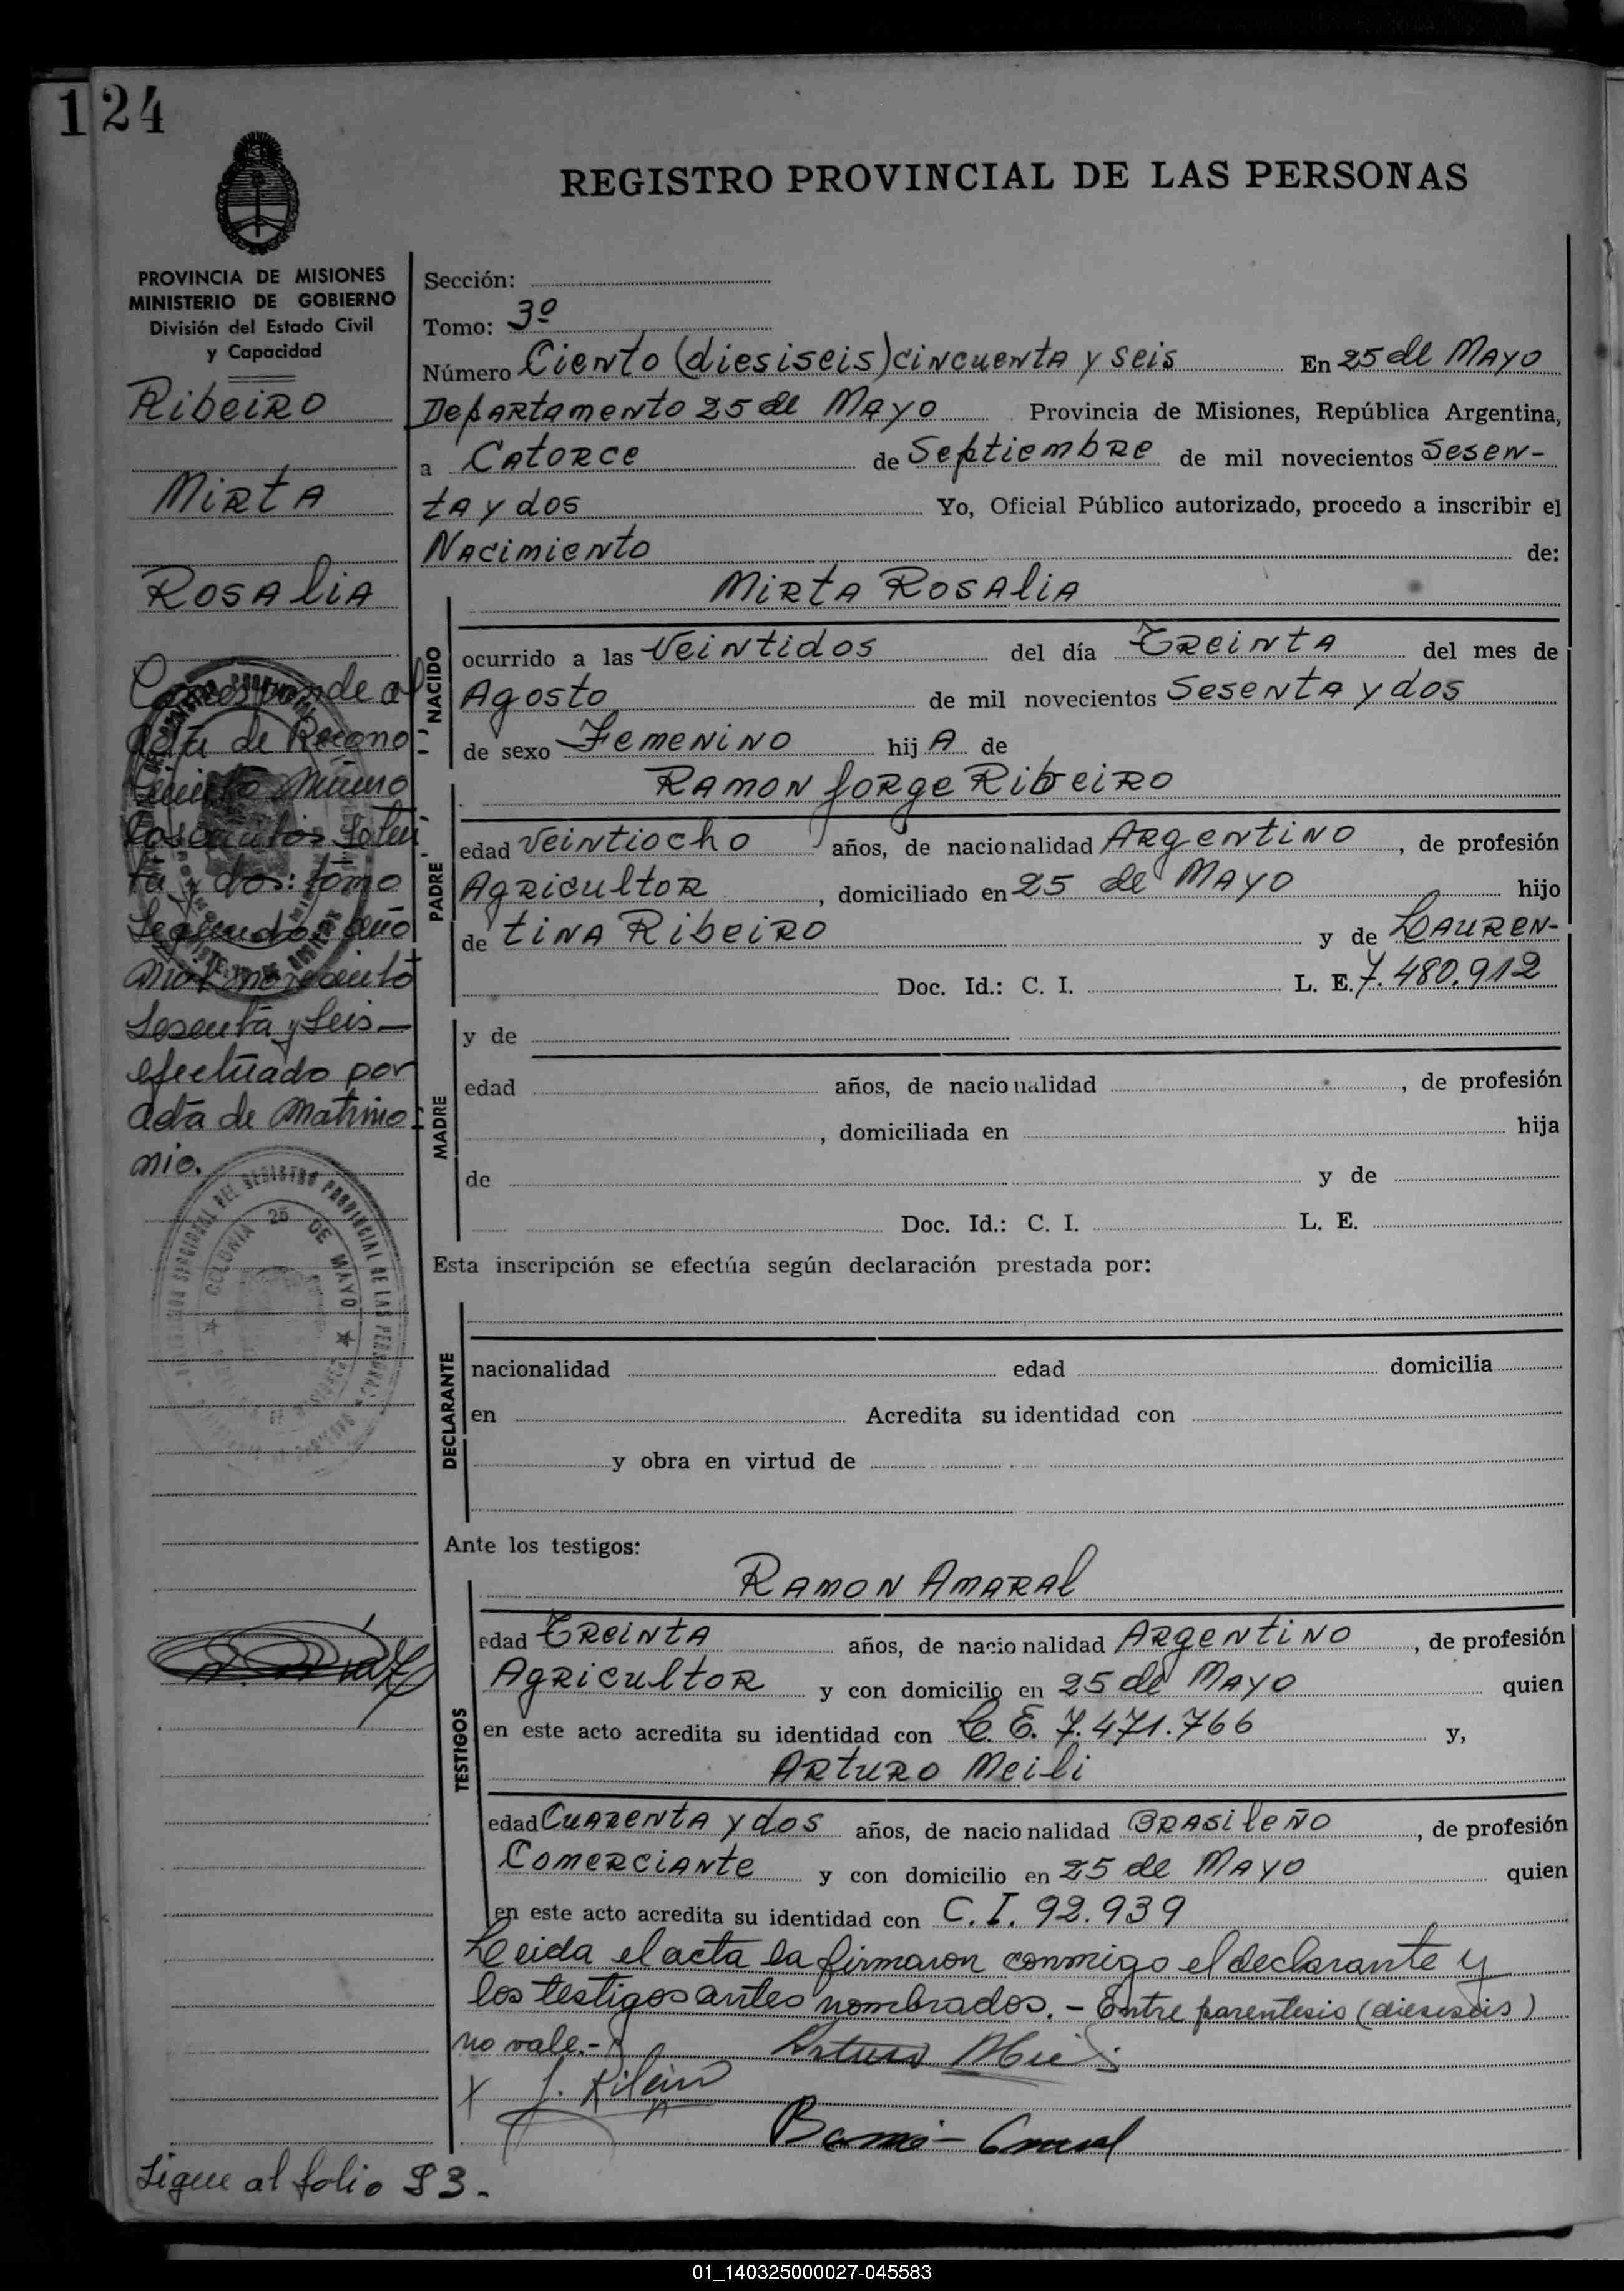 124
REGISTRO PROVINCIAL DE LAS PERSONAS
PROVINCIA DE MISIONES
MINISTERIO DE GOBIERNO
División del Estado Civil
y Capacidad
Ribeiro
Mirta
Rosalia
Corresponde al
Acta de Recono
cimiento Número
doscientos seten
ta y dos: tomo
Segundo, año
mil novecientos
Sesenta y Seis_
efectuado por
acta de Matrimo
nio.
COLONIA 25 DE MAYO
Sección:
Tomo: 3º
Número Ciento (diesiseis) cincuenta y seis En 25 de Mayo
Departamento 25 de Mayo Provincia de Misiones, República Argentina,
a Catorce de Septiembre de mil novecientos Sesen-
ta y dos Yo, Oficial Público autorizado, procedo a inscribir el
Nacimiento de:
Mirta Rosalia
NACIDO
ocurrido a las Veintidos del día Treinta del mes de
Agosto de mil novecientos Sesenta y dos
de sexo Femenino hij A de
Ramon Jorge Ribeiro
PADRE
edad Veintiocho años, de nacionalidad Argentino, de profesión
Agricultor, domiciliado en 25 de Mayo hijo
de tina Ribeiro y de Lauren-
Doc. Id.: C. I. L. E. 7.480.912
MADRE
y de
edad años, de nacionalidad , de profesión
, domiciliada en hija
de y de
Doc. Id.: C. I. L. E.
Esta inscripción se efectúa según declaración prestada por:
DECLARANTE
nacionalidad edad domicilia
en Acredita su identidad con
y obra en virtud de
Ante los testigos:
Ramon Amaral
TESTIGOS
edad Treinta años, de nacionalidad Argentino, de profesión
Agricultor y con domicilio en 25 de Mayo quien
en este acto acredita su identidad con L. E. 7.471.766 y,
Arturo Meili
edad Cuarenta y dos años, de nacionalidad Brasileño, de profesión
Comerciante y con domicilio en 25 de Mayo quien
en este acto acredita su identidad con C. I. 92.939
Leida el acta la firmaron conmigo el declarante y
los testigos antes nombrados. - Entre parentesis (diesiseis)
no vale.-
Sigue al folio 93.
01_140325000027-045583